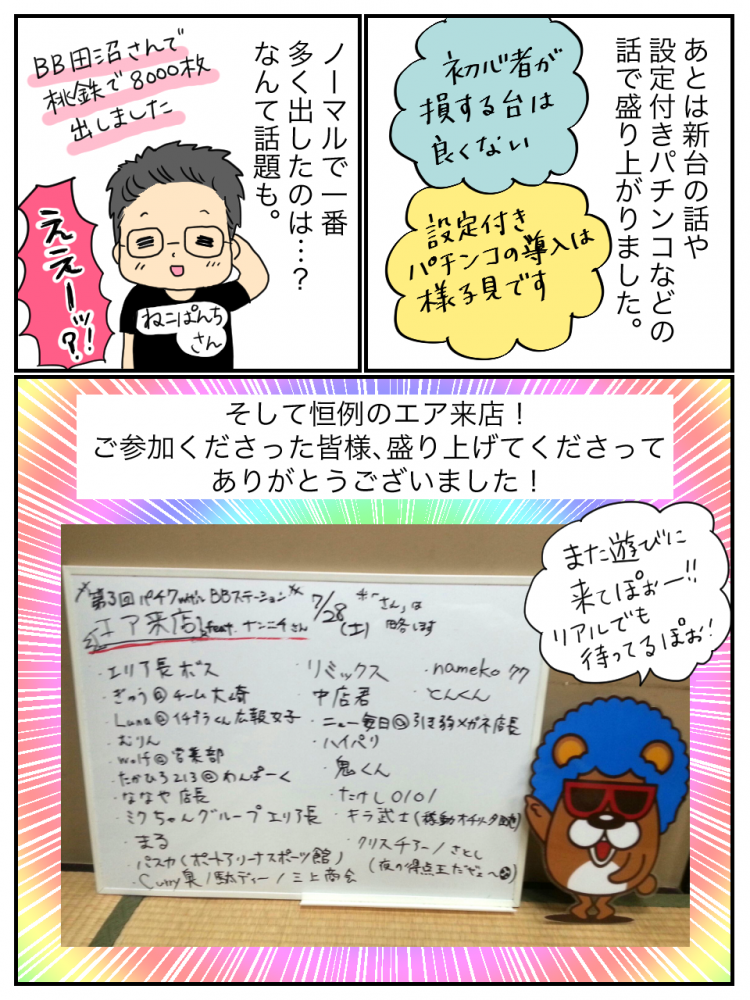 あとは新台の話や
設定付きパチンコなどの
話で盛り上がりました。
初心者が
損する台は
良くない
設定付き
パチンコの導入は
様子見です
ノーマルで一番
多く出したのは…?
なんて話題も。
BB田沼さんで
桃鉄で8000枚
出しました
ええーッ?!
ねこぱんち
さん
そして恒例のエア来店!
ご参加くださった皆様、盛り上げてくださって
ありがとうございました!
第3回パチ7with BBステーション
エア来店 feat. ナンニチさん
7/28
(土)
※「さん」は
略します
・エリア長ボス
・ぎゅう@チーム大崎
・Luna@イチプラくん広報女子
・むりん
・wolf@営業部
・たかひろ213@わんぱーく
・ななや店長
・ミクちゃんグループエリア長
・まる
・パスカ(ポートアリーナスポーツ館)
・Curry臭/駄ディー/三上商会
・リミックス
・中店君
・ニュー毎日@引き弱メガネ店長
・ハイパリ
・鬼くん
・たけし0101
・キラ武士(稼動オチリータ
・クリスチアーノさとし
(夜の得点王だぜぇ〜
・nameko77
・とんくん
また遊びに
来てぽぉー!!
リアルでも
待ってるぽぉ!